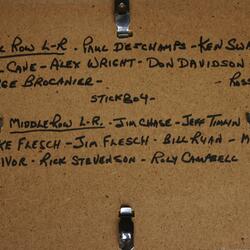 Row L-R - PAUL DESCHAMPS - KEN
CANE - ALEX WRIGHT - DON DAVIDSON
BROCANIER -
STICKBOY -
MIDDLE ROW L-R. - JIM CHASE - JEFF TIMLIN
FLESCH - JIM FLESCH - BILL RYAN -
IVOR - RICK STEVENSON - ROLY CAMPBELL